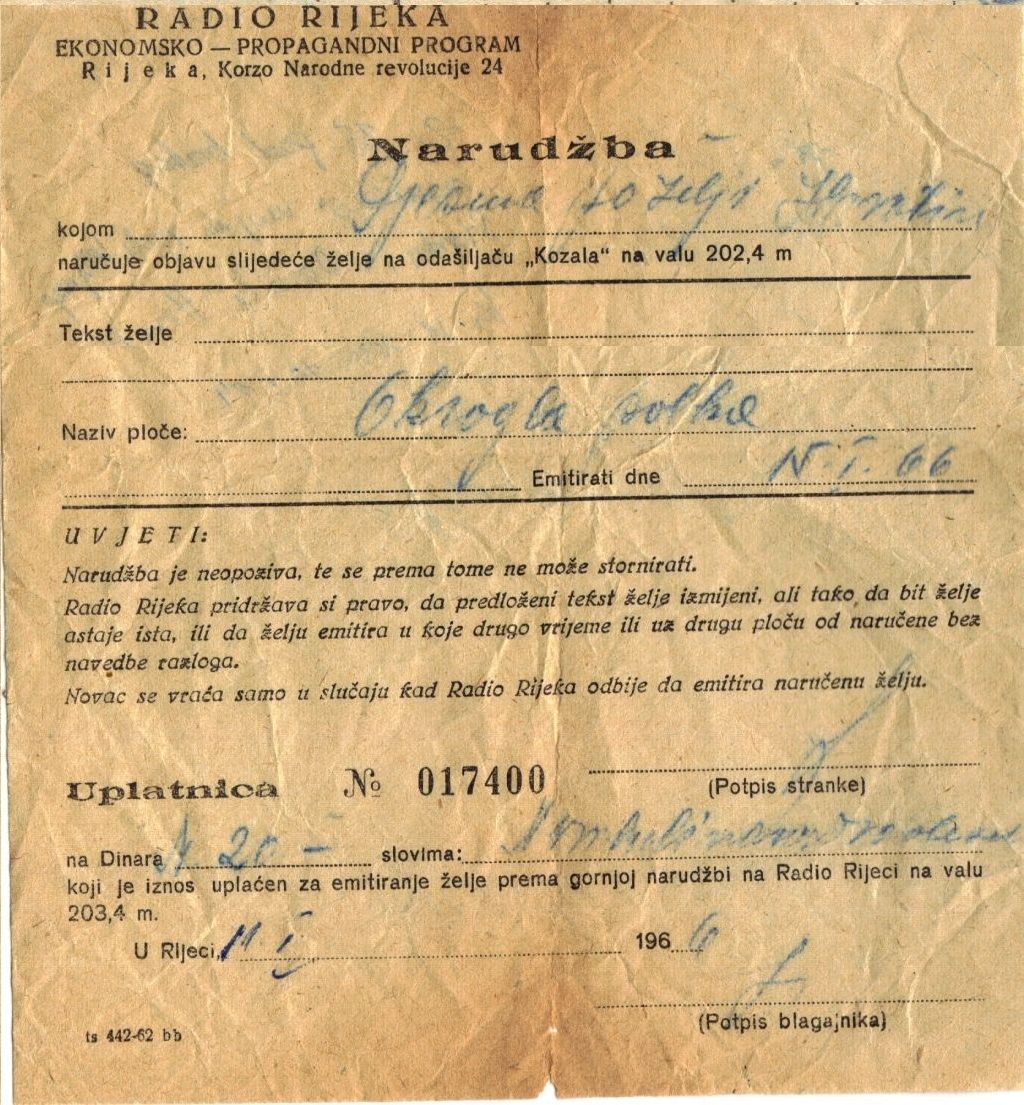 RADIO RIJEKA
EKONOMSKO — PROPAGANDNI PROGRAM
Rijeka, Korzo Narodne revolucije 24
Narudžba
kojom Pjesma po želji
naručuje objavu slijedeće želje na odašiljaču „Kozala" na valu 202,4 m
Tekst želje
Naziv ploče: Okrogla polka
Emitirati dne 15. I. 66
UVJETI:
Narudžba je neopoziva, te se prema tome ne može stornirati.
Radio Rijeka pridržava si pravo, da predloženi tekst želje izmijeni, ali tako da bit želje
astaje ista, ili da želju emitira u koje drugo vrijeme ili uz drugu ploču od naručene bez
navedbe razloga.
Novac se vraća samo u slučaju kad Radio Rijeka odbije da emitira naručenu želju.
Uplatnica № 017400
(Potpis stranke)
na Dinara N 20 - slovima:
koji je iznos uplaćen za emitiranje želje prema gornjoj narudžbi na Radio Rijeci na valu
203,4 m.
U Rijeci, 11 I 196 6
(Potpis blagajnika)
ts 442-62 bb